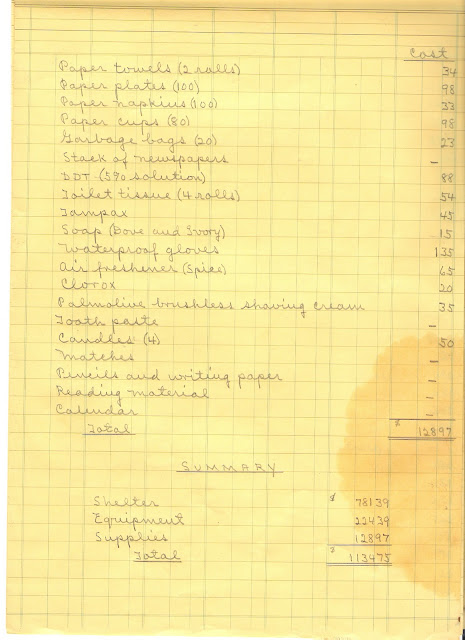 Cost
Paper towels (2 rolls) 34
Paper plates (100) 98
Paper napkins (100) 33
Paper cups (80) 98
Garbage bags (20) 23
Stack of newspapers –
DDT (5% solution) 88
Toilet tissue (4 rolls) 54
Tampax 45
Soap (Dove and Ivory) 15
Waterproof gloves 135
Air freshener (Spice) 65
Clorox 20
Palmolive brushless shaving cream 35
Tooth paste –
Candles (4) 50
Matches –
Pencils and writing paper –
Reading material –
Calendar –
Total $ 12897
SUMMARY
Shelter $ 78139
Equipment 22439
Supplies 12897
Total $ 113475